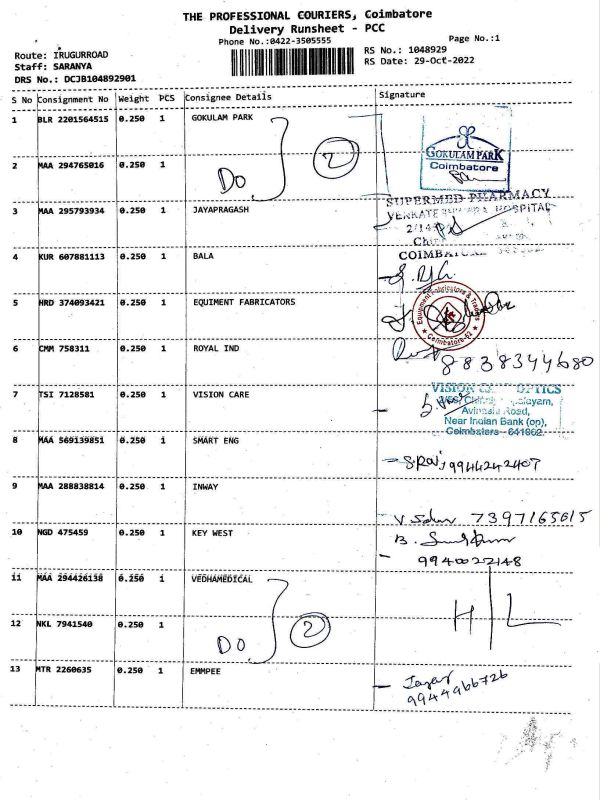 THE PROFESSIONAL COURIERS, Coimbatore
Delivery Runsheet - PCC
Phone No.:0422-3505555
Page No.:1
Route: IRUGURROAD
Staff: SARANYA
DRS No.: DCJB104892901
RS No.: 1048929
RS Date: 29-Oct-2022
S No Consignment No Weight PCS Consignee Details Signature
1 BLR 2201564515 0.250 1 GOKULAM PARK
GOKULAM PARK
Coimbatore
2 MAA 294765016 0.250 1
DO 2
3 MAA 295793934 0.250 1 JAYAPRAGASH
SUPERMED PHARMACY
HOSPITAL
4 KUR 607881113 0.250 1 BALA
5 HRD 374093421 0.250 1 EQUIMENT FABRICATORS
Equipment Fabricators &
Coimbatore
6 CMM 758311 0.250 1 ROYAL IND
8838344680
7 TSI 7128581 0.250 1 VISION CARE
VISION OPTICS
Avinashi Road,
Near Indian Bank (op),
Coimbatore - 641062.
8 MAA 569139851 0.250 1 SMART ENG
S.Raj, 9944242407
9 MAA 288838814 0.250 1 INWAY
7397165615
10 NGD 475459 0.250 1 KEY WEST
B.
9940022148
11 MAA 294426138 0.250 1 VEDHAMEDICAL
12 NKL 7941540 0.250 1
DO 2
H/L
13 MTR 2260635 0.250 1 EMMPEE
9944966726